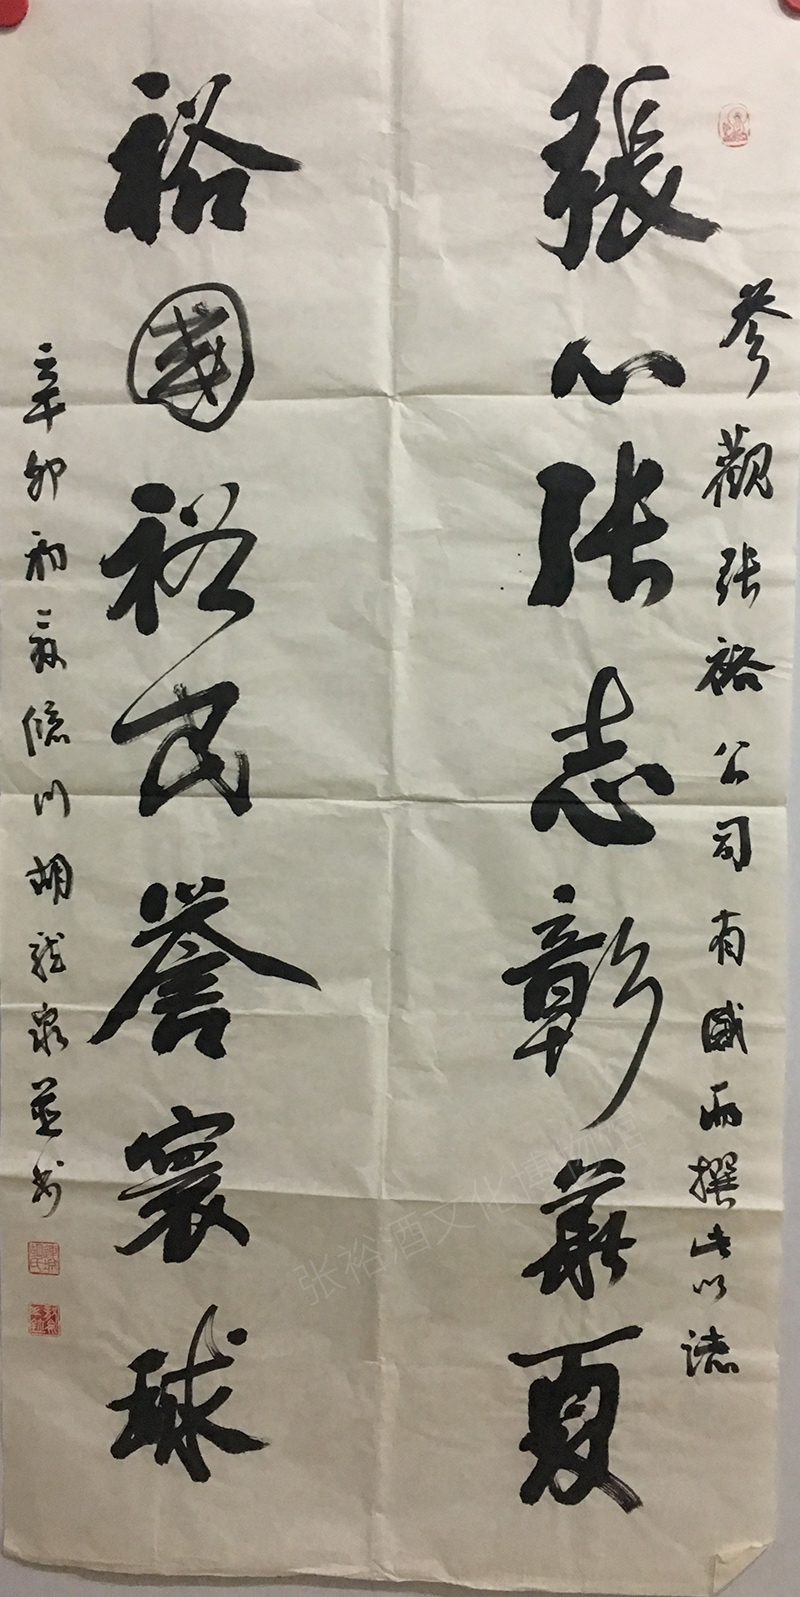 參觀张裕公司有感而撰此以誌
張心张志彰華夏
裕國裕民譽寰球
辛卯初夏隐川胡龙泉並书
张裕酒文化博物馆